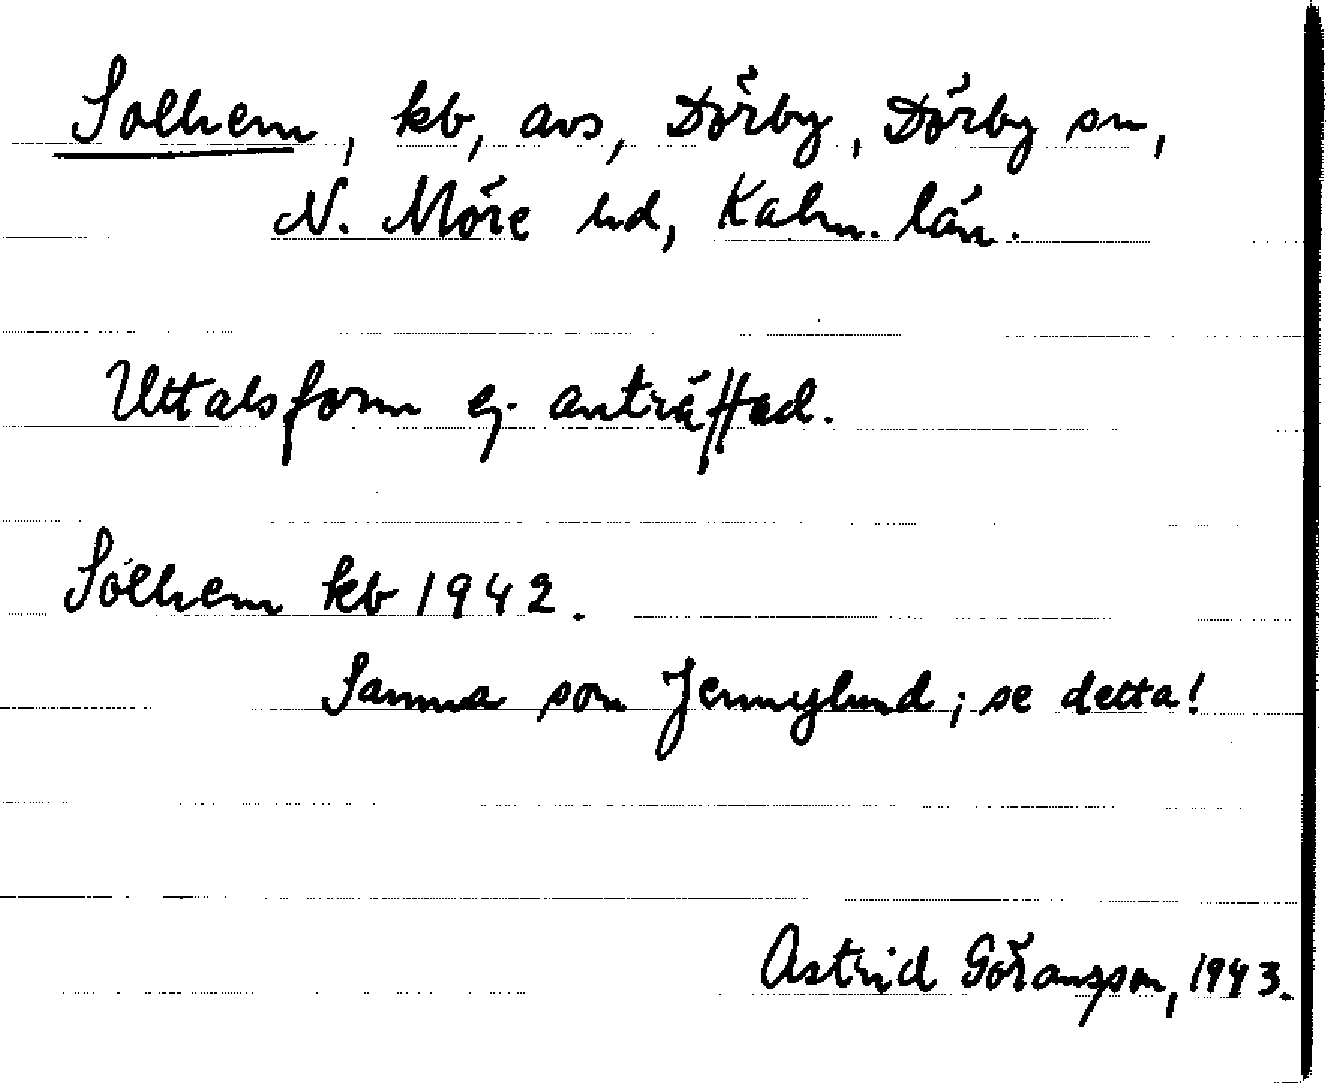 Solhem, kb, avs, Dörby, Dörby sn,
N. Möre hd, Kalm. län.
Uttalsform ej anträffad.
Solhem kb 1942.
Samma som Jennylund; se detta!
Astrid Göransson, 1943.